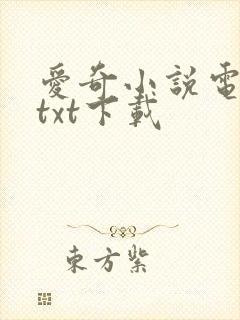 愛奇小說電
txt下載
東方紫